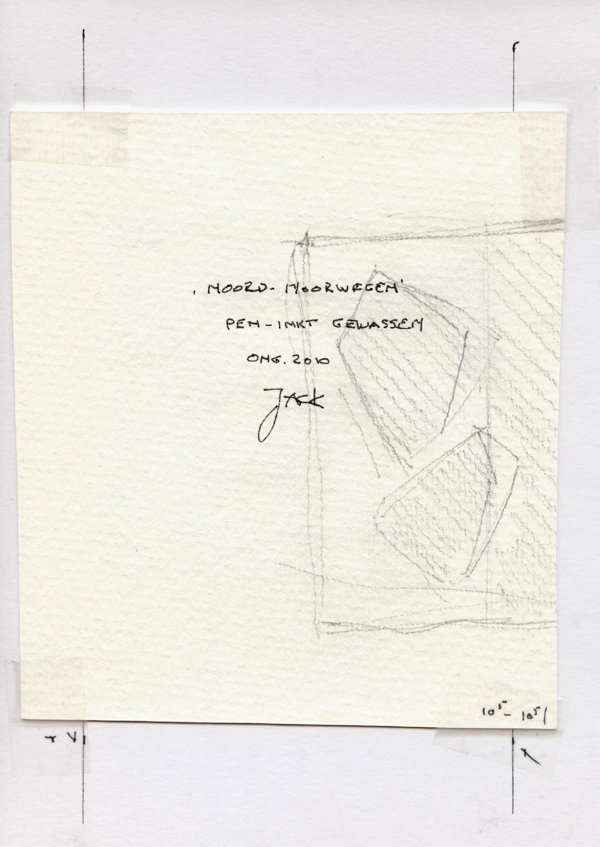 'NOORD-NOORWEGEN'
PEN-INKT GEWASSEN
ONG. 2010
JACK
10⁵ - 10⁵/